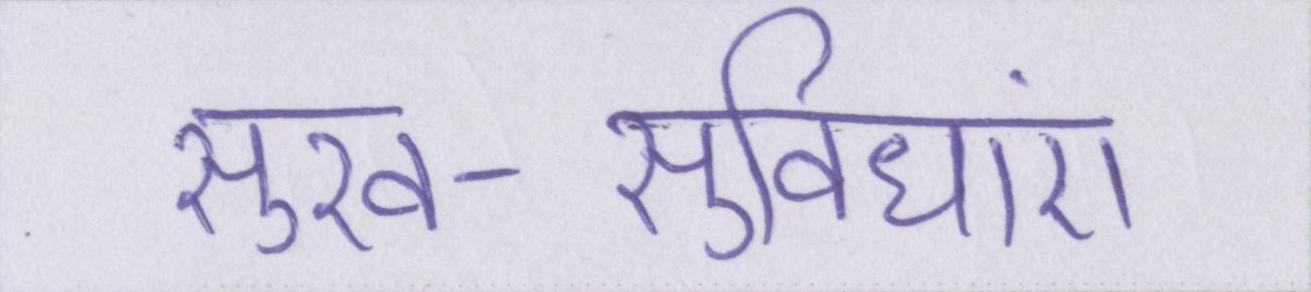 सुख-सुविधांए